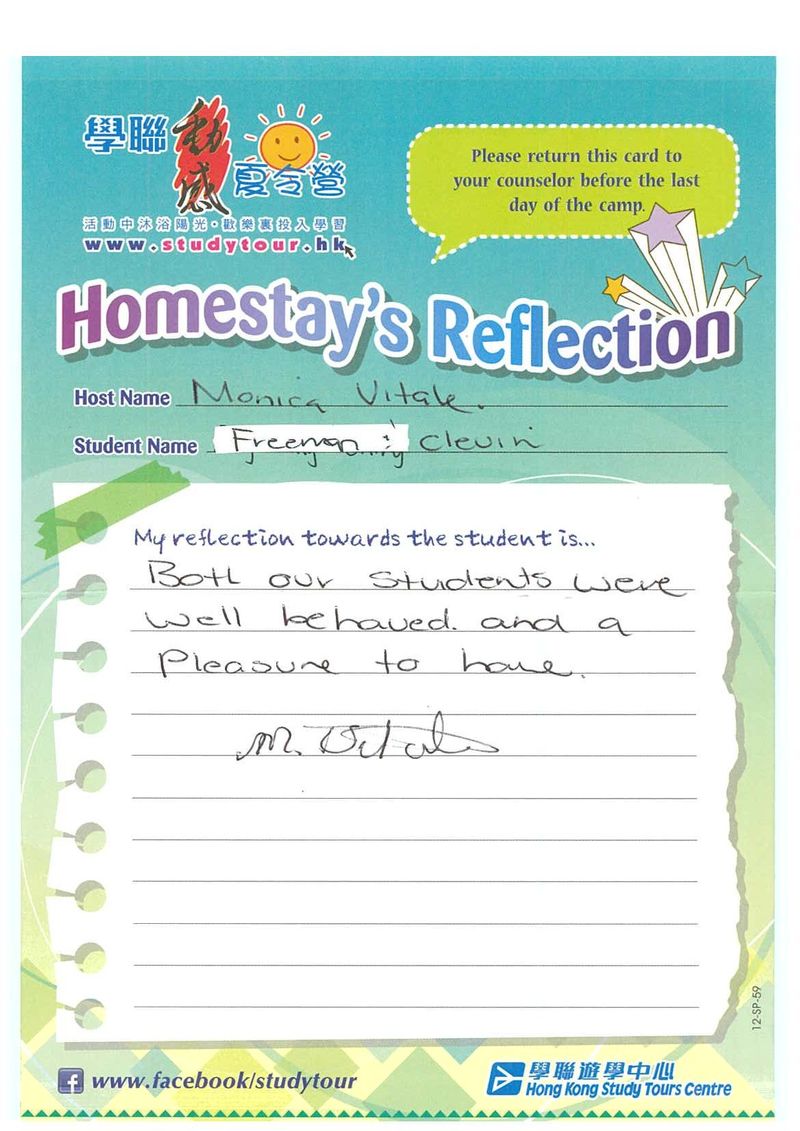 學聯 動感 夏令營
活動中沐浴陽光·歡樂裏投入學習
www.studytour.hk
Please return this card to
your counselor before the last
day of the camp.
Homestay's Reflection
Host Name Monica Vitale.
Student Name Freeman & Clevin
My reflection towards the student is...
Both our students were
well behaved. and a
Pleasure to have.
M. Vitale
12-SP-59
www.facebook/studytour
學聯遊學中心
Hong Kong Study Tours Centre